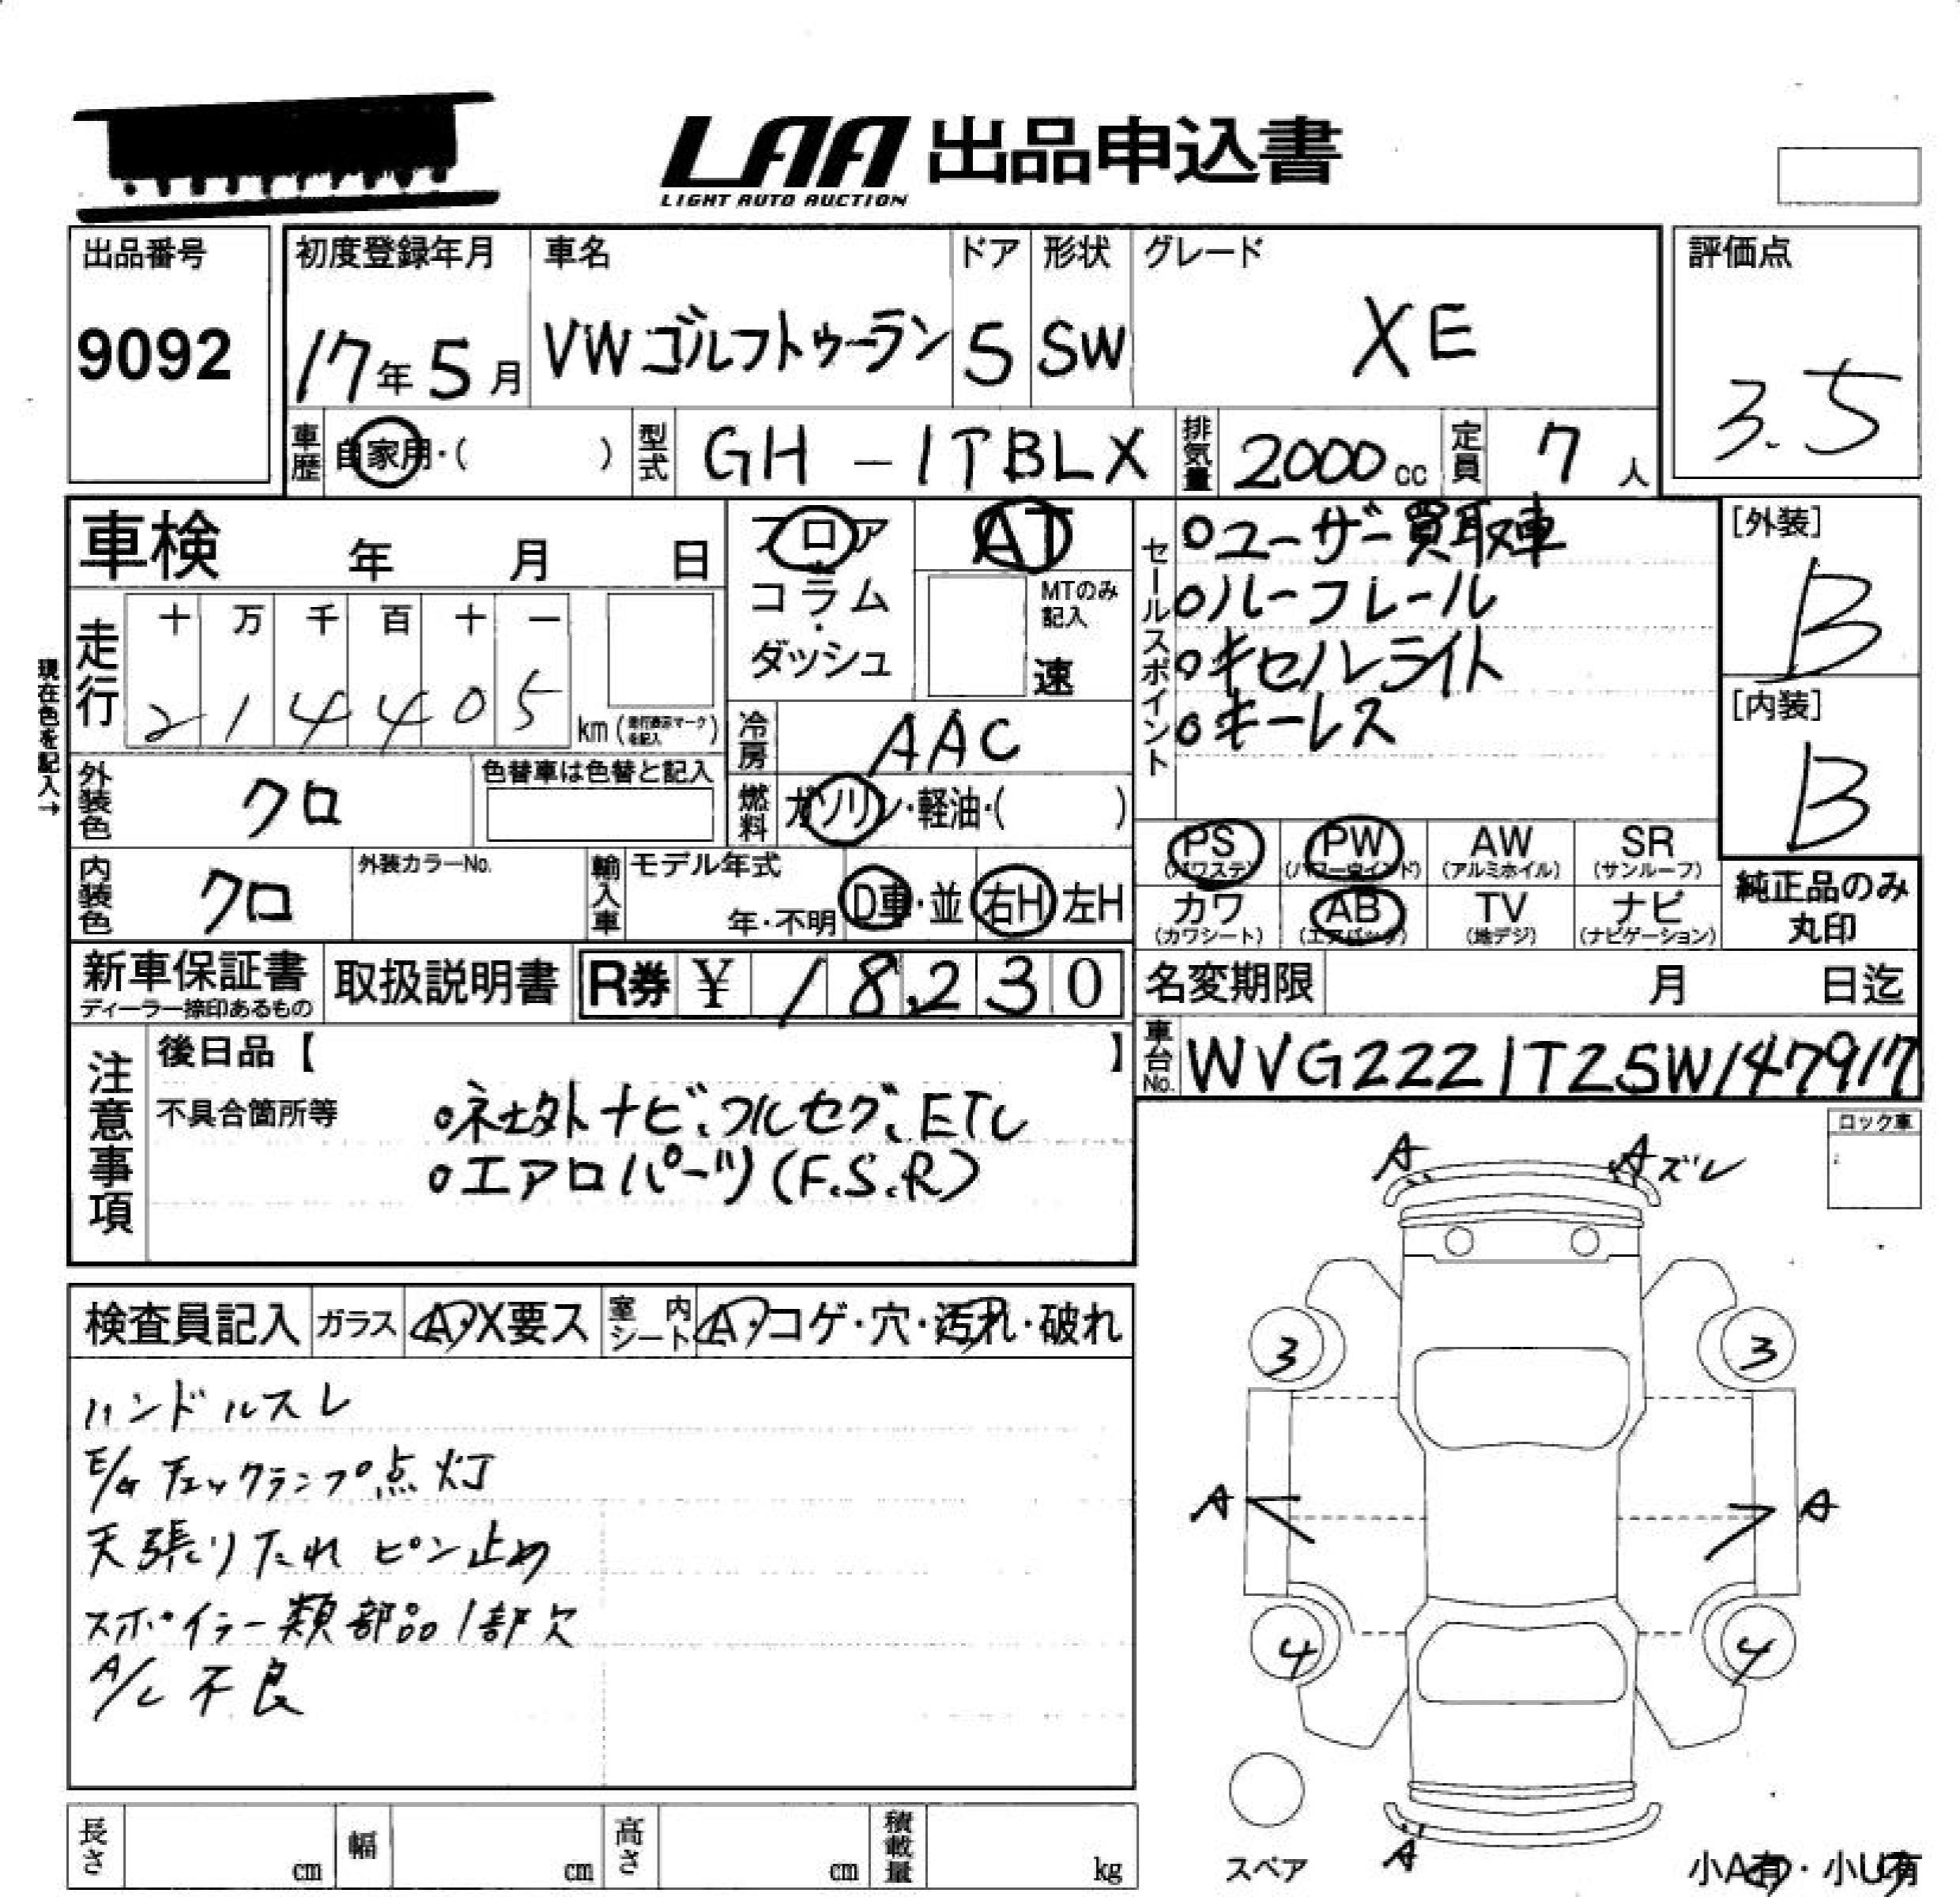 LAA 出品申込書
LIGHT AUTO AUCTION
出品番号 初度登録年月 車名 ドア 形状 グレード 評価点
9092 17年5月 VWゴルフトゥーラン 5 SW XE 3.5
車歴 自家用・( ) 型式 GH-1TBLX 排気量 2000cc 定員 7人
車検 年 月 日
フロア
コラム・
ダッシュ
AT
MTのみ
記入
速
セールスポイント
○ユーザー買取車
○ルーフレール
○キセルライト
○キーレス
[外装]
B
[内装]
B
現在色を記入→
走行 十 万 千 百 十 一
214405 km (走行表示マークを記入)
冷房 AAC
外装色 クロ 色替車は色替と記入
燃料 ガソリン・軽油・( )
内装色 クロ 外装カラーNo. 輸入車 モデル年式
年・不明 D車・並 右H 左H
PS (パワステ) PW (パワーウインド) AW (アルミホイル) SR (サンルーフ)
カワ (カワシート) AB (エアバック) TV (地デジ) ナビ (ナビゲーション)
純正品のみ
丸印
新車保証書 取扱説明書 R券 ¥ 18,230
ディーラー捺印あるもの
名変期限 月 日迄
車台No. WVG2221TZ5W147917
注意事項
後日品【 】
不具合箇所等
○社外ナビ、フルセグ、ETC
○エアロパーツ(F.S.R)
ロック車
検査員記入 ガラス A・X要ス 室内シート A・コゲ・穴・汚れ・破れ
ハンドルスレ
E/Gチェックランプ点灯
天張りたれ ピン止め
スポイラー類部品1部欠
A/C 不良
A Aズレ
3 3
A A
4 4
スペア
A
小A有・小U有
長さ cm 幅 cm 高さ cm 積載量 kg